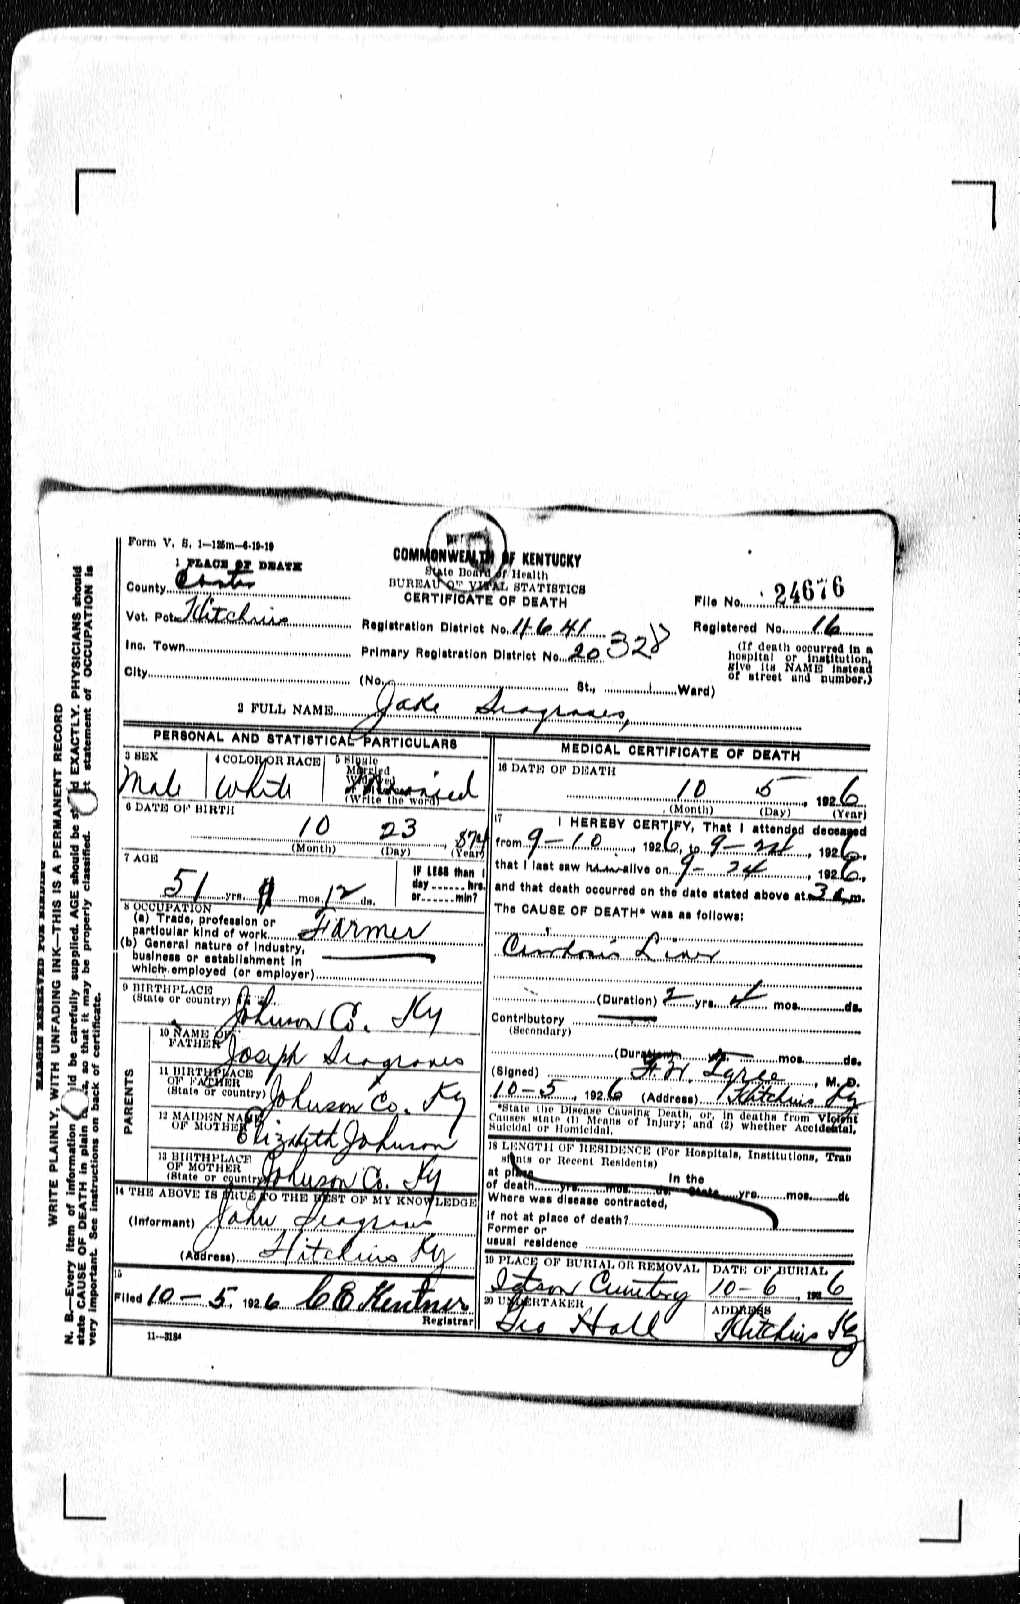 Form V. S. 1—125m—6-19-19
1 PLACE OF DEATH
COMMONWEALTH OF KENTUCKY
State Board of Health
BUREAU OF VITAL STATISTICS
CERTIFICATE OF DEATH
County Carter
Vot. Pct. Hitchins
Inc. Town
City
File No. 24676
Registration District No. 4641
Registered No. 16
Primary Registration District No. 20 328
(If death occurred in a
hospital or institution,
give its NAME instead
of street and number.)
(No. St., Ward)
2 FULL NAME Jake Seagraves,
PERSONAL AND STATISTICAL PARTICULARS
3 SEX
Male
4 COLOR OR RACE
White
5 Single
Married
Widowed
(Write the word)
6 DATE OF BIRTH
10 23 , 874
(Month) (Day) (Year)
7 AGE
51 yrs. mos. 12 ds.
IF LESS than 1
day hrs.
or min?
8 OCCUPATION
(a) Trade, profession or
particular kind of work Farmer
(b) General nature of industry,
business or establishment in
which employed (or employer)
9 BIRTHPLACE
(State or country)
Johnson Co. Ky
PARENTS
10 NAME OF
FATHER Joseph Seagraves
11 BIRTHPLACE
OF FATHER
(State or country) Johnson Co. Ky
12 MAIDEN NAME
OF MOTHER Elizabeth Johnson
13 BIRTHPLACE
OF MOTHER
(State or country) Johnson Co. Ky
14 THE ABOVE IS TRUE TO THE BEST OF MY KNOWLEDGE
(Informant) John Seagraves
(Address) Hitchins Ky
15
Filed 10-5, 1926 C E Kentner
Registrar
11—3184
MEDICAL CERTIFICATE OF DEATH
16 DATE OF DEATH
10 5 , 1926
(Month) (Day) (Year)
17
I HEREBY CERTIFY, That I attended deceased
from 9-10, 1926, to 9-24, 1926,
that I last saw him alive on 9-24, 1926,
and that death occurred on the date stated above at 3 m.
The CAUSE OF DEATH* was as follows:
Cirrhosis Liver
(Duration) 2 yrs. 4 mos. ds.
Contributory
(Secondary)
(Duration) mos. ds.
(Signed) , M. D.
10-5, 1926 (Address) Hitchins Ky
*State the Disease Causing Death, or, in deaths from Violent
Causes state (1) Means of Injury; and (2) whether Accidental,
Suicidal or Homicidal.
18 LENGTH OF RESIDENCE (For Hospitals, Institutions, Tran
sients or Recent Residents)
at place In the
of death yrs. mos. ds. State yrs. mos. ds
Where was disease contracted,
if not at place of death?
Former or
usual residence
19 PLACE OF BURIAL OR REMOVAL
DATE OF BURIAL
Cemetery
10-6, 1926
20 UNDERTAKER
ADDRESS
Geo Hall
Hitchins Ky
MARGIN RESERVED FOR BINDING
WRITE PLAINLY, WITH UNFADING INK—THIS IS A PERMANENT RECORD
N. B.—Every item of information should be carefully supplied. AGE should be stated EXACTLY. PHYSICIANS should
state CAUSE OF DEATH in plain terms, so that it may be properly classified. Exact statement of OCCUPATION is
very important. See instructions on back of certificate.